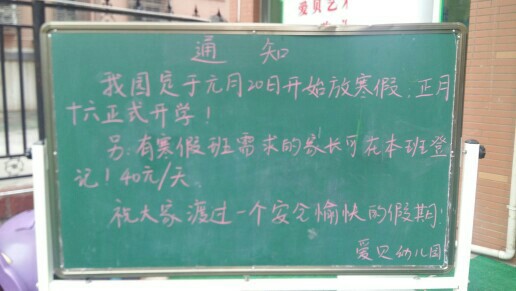 爱贝艺术
通 知
我园定于元月20日开始放寒假，正月
十六正式开学！
另：有寒假班需求的家长可在本班登
记！40元/天
祝大家渡过一个安全愉快的假期！
爱贝幼儿园